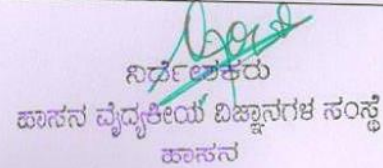 ನಿರ್ದೇಶಕರು
ಹಾಸನ ವೈದ್ಯಕೀಯ ವಿಜ್ಞಾನಗಳ ಸಂಸ್ಥೆ
ಹಾಸನ